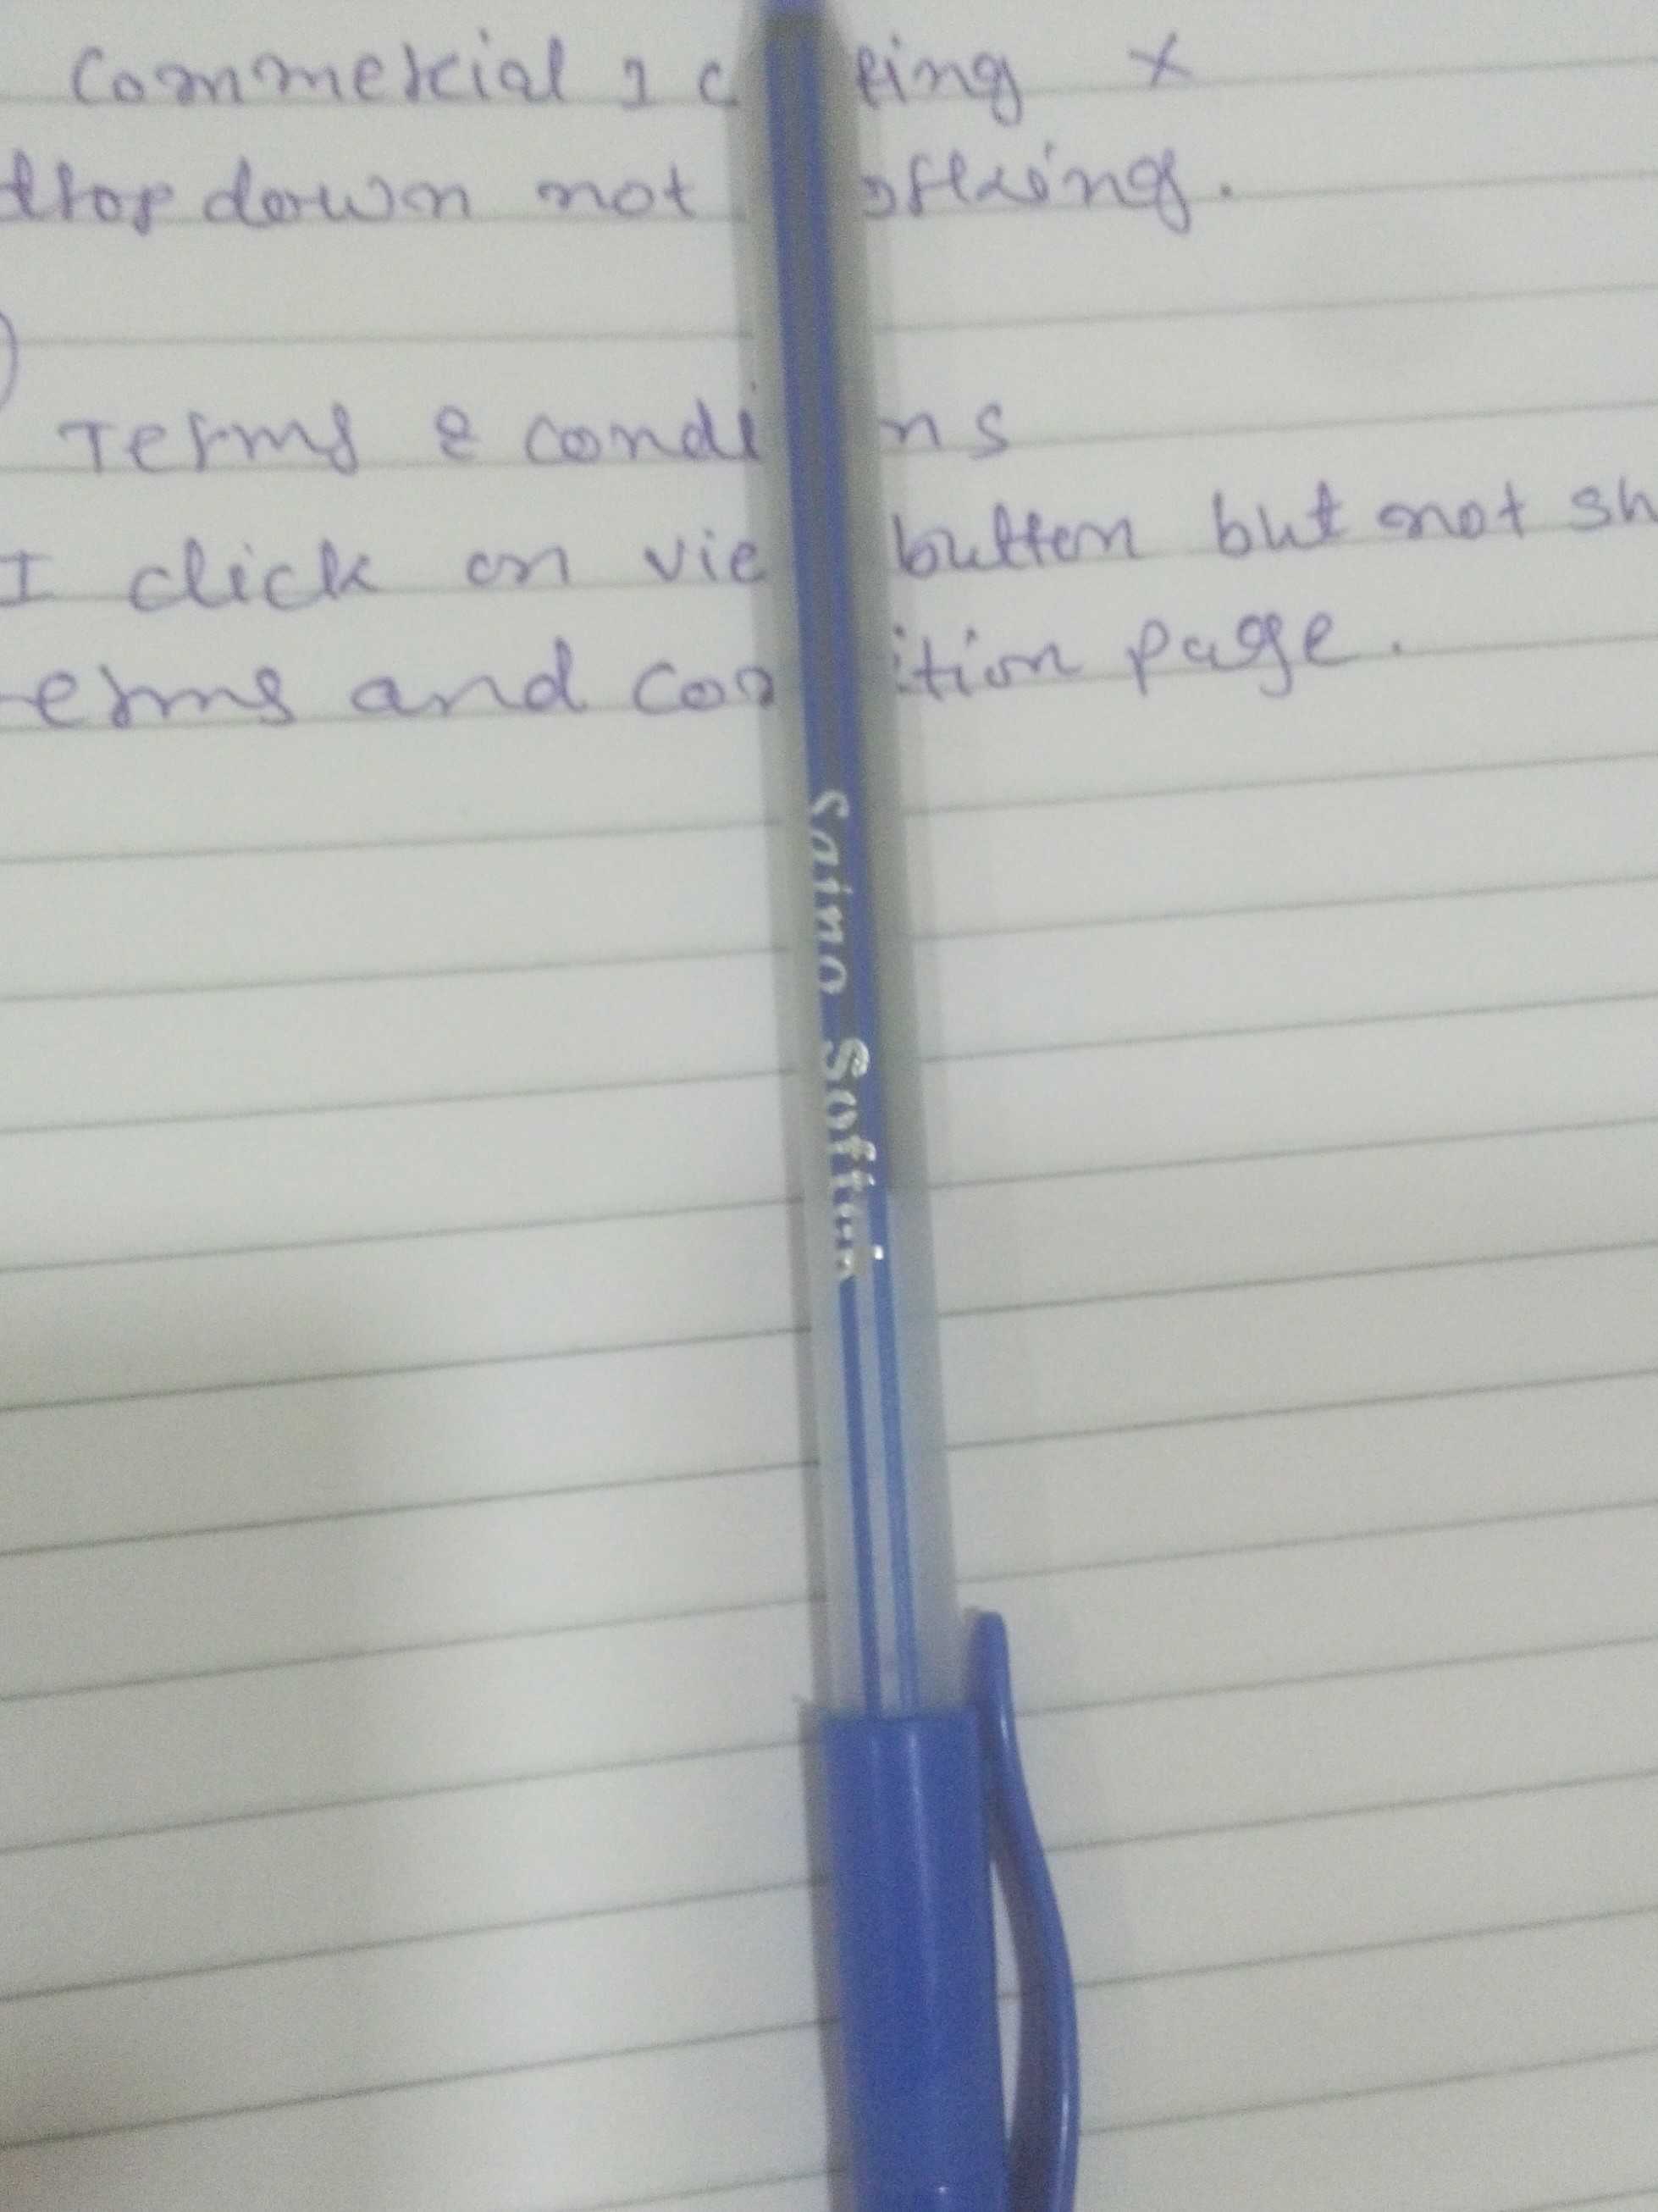 Commercial
drop down not
Terms & condi ns
I click on vie button but not sh
erms and con ition page.
Saino Softek